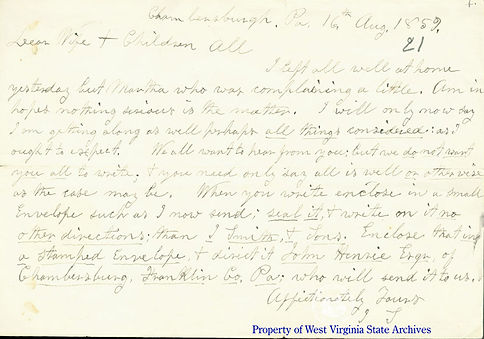 Chambersburgh, Pa. 16th Aug, 1859.
21
Dear Wife & Children All
I left all well at home
yesterday but Martha who was complaining a little. Am in
hopes nothing serious is the matter. I will only now say
I am getting along as well perhaps all things considered: as I
ought to expect. We all want to hear from you; but we do not want
you all to write. & you need only say all is well or otherwise
as the case may be. When you write enclose in a small
Envelope such as I now send; seal it, & write on it no
other directions; than I Smith, & Sons. Enclose that in
a Stamped Envelope, & direct it John Henrie Esqr, of
Chambersburg, Franklin Co. Pa; who will send it to us.
Affectionately Yours
I S
Property of West Virginia State Archives